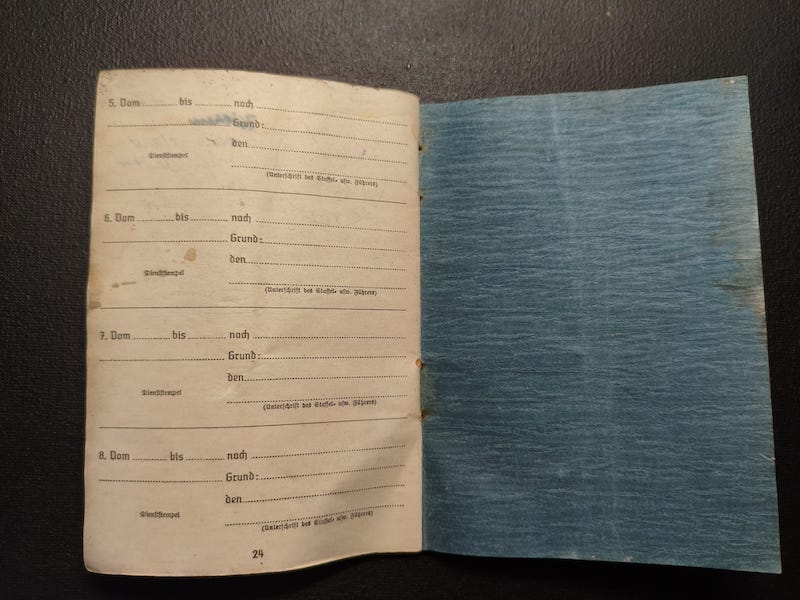 5. Vom ........ bis ........ nach ........
........ Grund: ........
den ........
Dienststempel
(Unterschrift des Staffel- usw. Führers)
6. Vom ........ bis ........ nach ........
........ Grund: ........
den ........
Dienststempel
(Unterschrift des Staffel- usw. Führers)
7. Vom ........ bis ........ nach ........
........ Grund: ........
den ........
Dienststempel
(Unterschrift des Staffel- usw. Führers)
8. Vom ........ bis ........ nach ........
........ Grund: ........
den ........
Dienststempel
(Unterschrift des Staffel- usw. Führers)
24